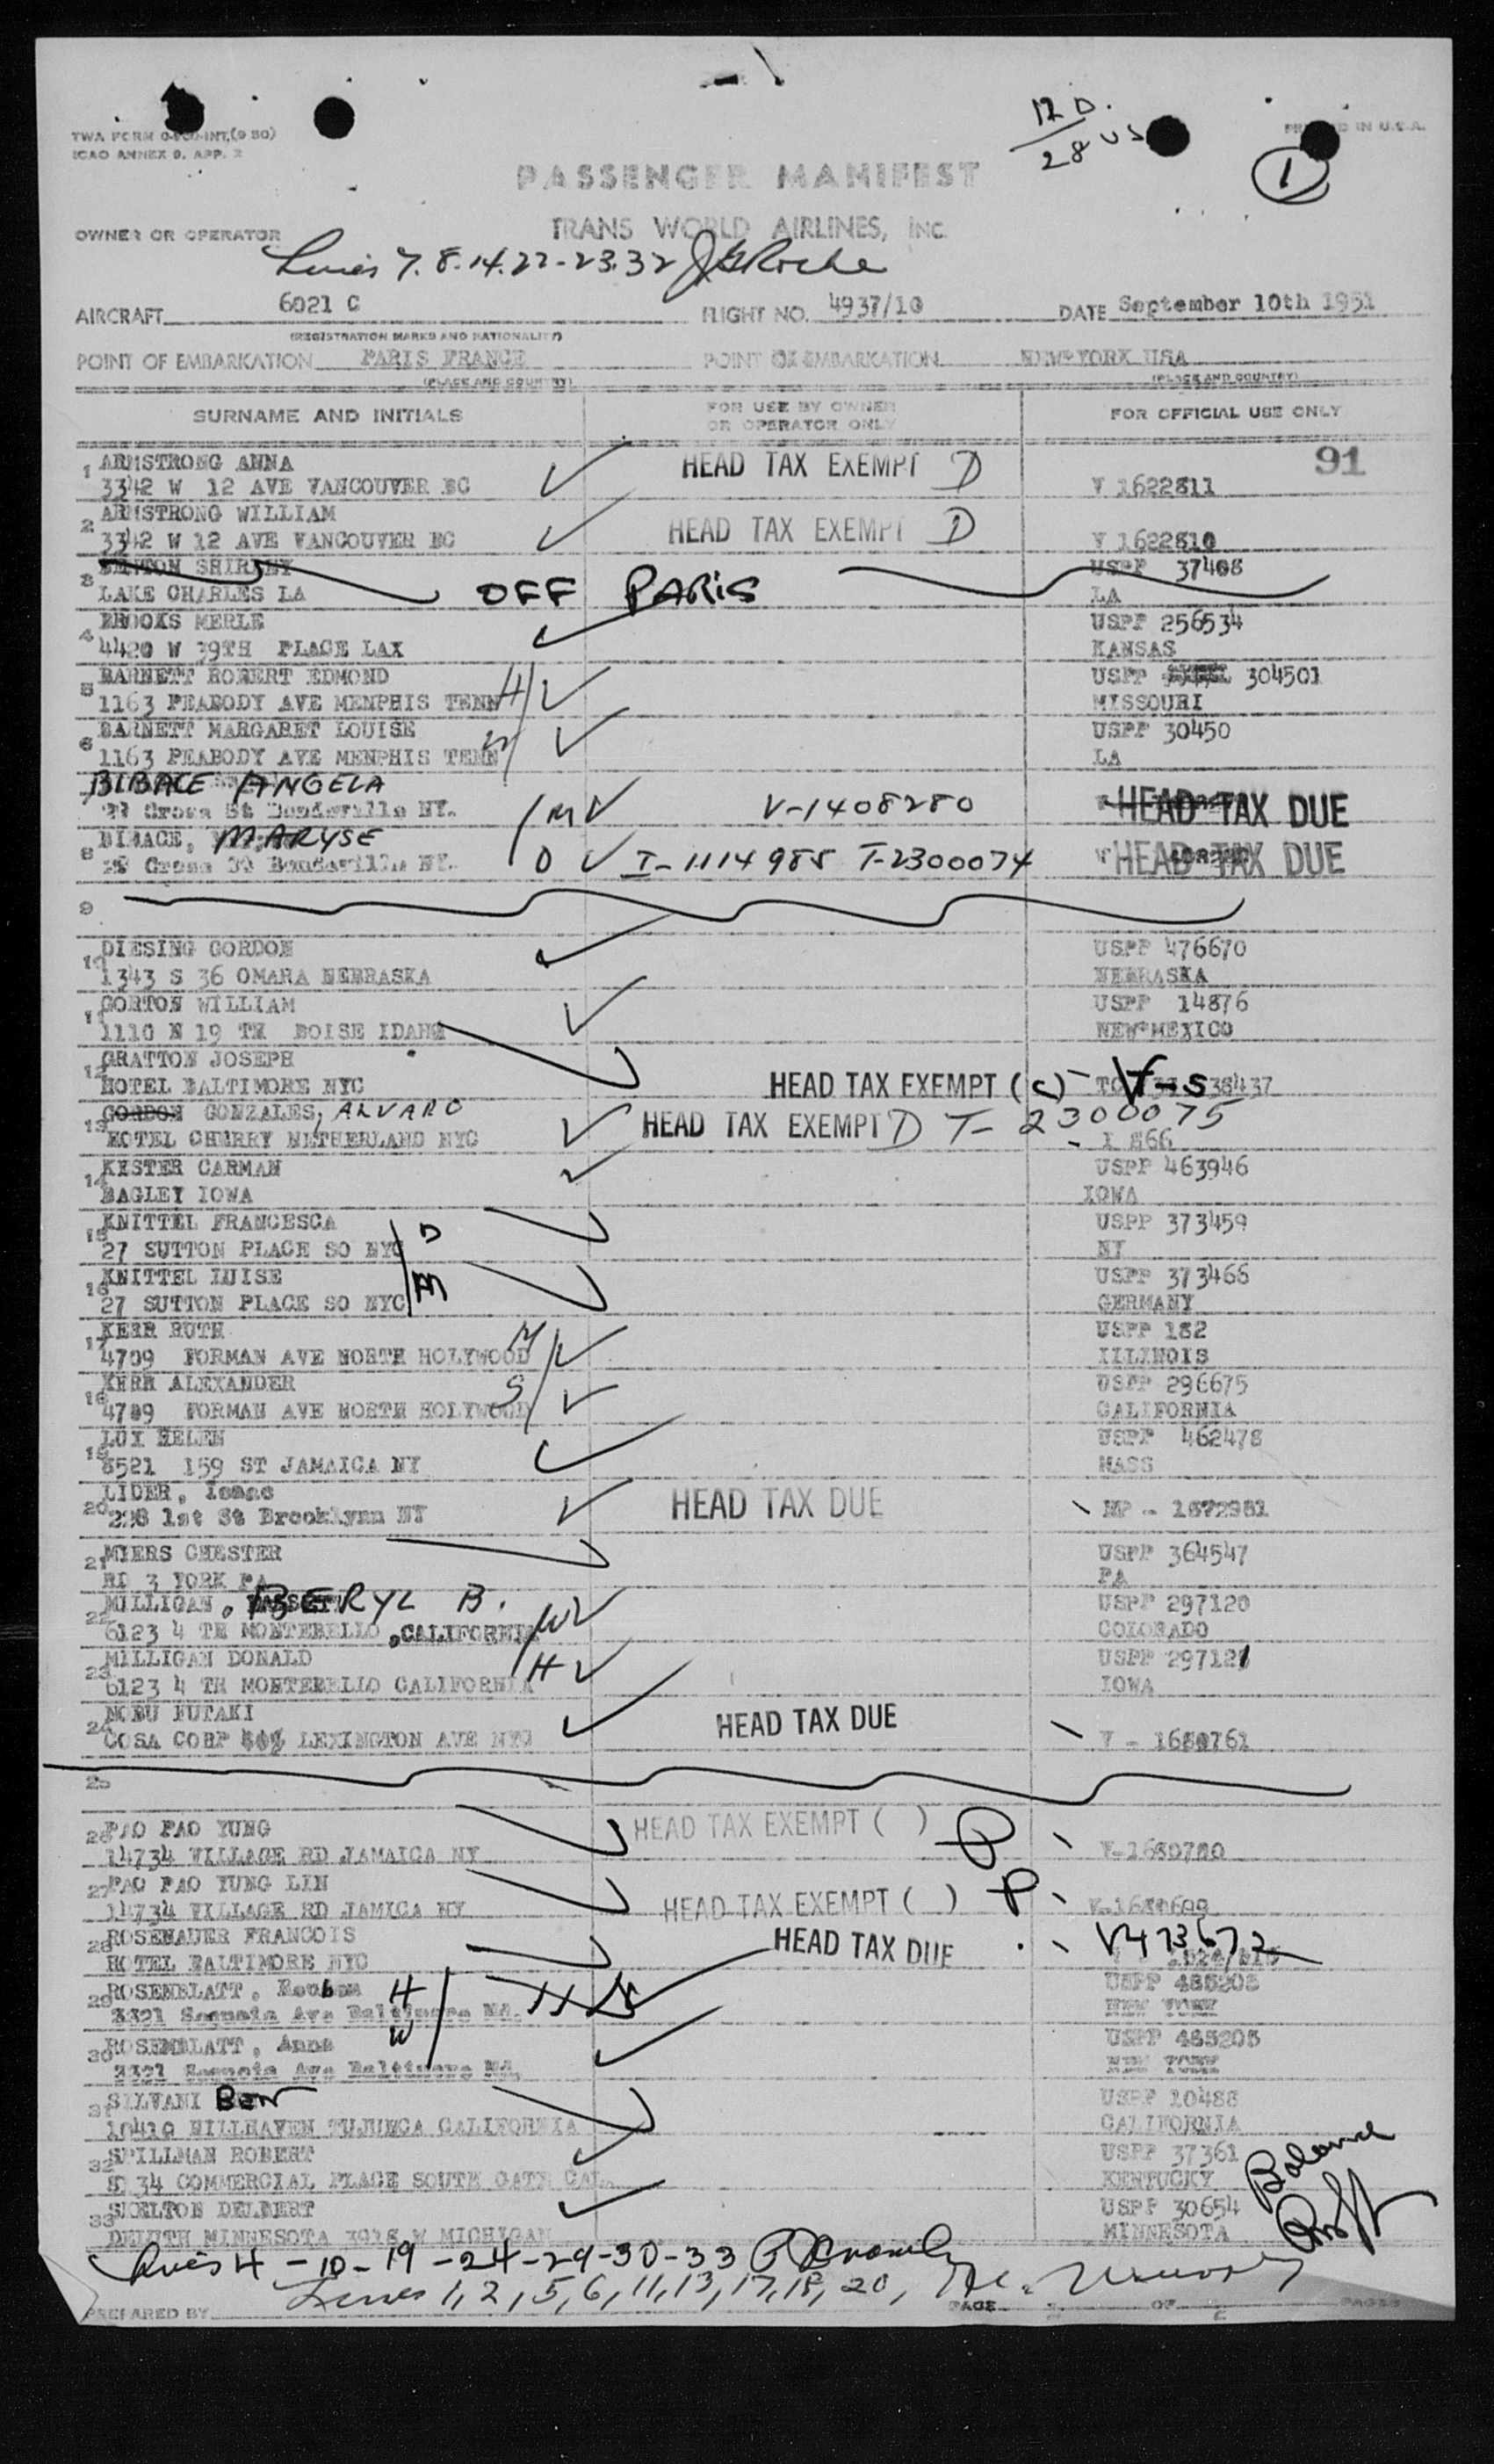 12 D.
28 US
TWA FORM
ICAO ANNEX 9, APP. 2
IN U.S.A.
1
PASSENGER MANIFEST
OWNER OR OPERATOR TRANS WORLD AIRLINES, INC.
Lines 7.8.14.22-23.32 Roche
AIRCRAFT 6021 C FLIGHT NO. 4937/10 DATE September 10th 1951
(REGISTRATION MARKS AND NATIONALITY)
POINT OF EMBARKATION PARIS FRANCE POINT EMBARKATION NEW YORK USA
(PLACE AND COUNTRY) (PLACE AND COUNTRY)
SURNAME AND INITIALS FOR USE BY OWNER OR OPERATOR ONLY FOR OFFICIAL USE ONLY
91
1 ARMSTRONG ANNA HEAD TAX EXEMPT D
3342 W 12 AVE VANCOUVER BC V 1622811
2 ARMSTRONG WILLIAM HEAD TAX EXEMPT D
3342 W 12 AVE VANCOUVER BC V 1622810
3 SHIRLEY USPP 37408
LAKE CHARLES LA OFF PARIS LA
4 BROOKS MERLE USPP 256534
4420 W 39TH PLACE LAX KANSAS
5 BARNETT ROBERT EDMOND H USPP 304501
1163 PEABODY AVE MEMPHIS TENN MISSOURI
6 BARNETT MARGARET LOUISE W USPP 30450
1163 PEABODY AVE MEMPHIS TENN LA
BIBACE ANGELA M V-1408280 HEAD TAX DUE
Cross St NY.
8 MARYSE D I-1114985 T-2300074 HEAD TAX DUE
Cross St NY.
9
10 DIESING GORDON USPP 476670
1343 S 36 OMAHA NEBRASKA NEBRASKA
11 GORTON WILLIAM USPP 14876
1110 N 19 TH BOISE IDAHO NEW MEXICO
12 GRATTON JOSEPH
HOTEL BALTIMORE NYC HEAD TAX EXEMPT (C) V-S 38437
13 GORDON GONZALES, ALVARO HEAD TAX EXEMPT D T-2300075
HOTEL CHERRY NETHERLAND NYC I 866
14 KESTER CARMAN USPP 463946
BAGLEY IOWA IOWA
15 KNITTEL FRANCESCA D USPP 373459
27 SUTTON PLACE SO NYC NY
16 KNITTEL LUISE M USPP 373466
27 SUTTON PLACE SO NYC GERMANY
17 KERR RUTH M USPP 182
4709 FORMAN AVE NORTH HOLYWOOD ILLINOIS
18 KERR ALEXANDER S USPP 296675
4709 FORMAN AVE NORTH HOLYWOOD CALIFORNIA
19 LUX HELEN USPP 462478
8521 159 ST JAMAICA NY MASS
20 LIDER, Isaac HEAD TAX DUE
228 1st St Brooklynn NY
21 MIERS CHESTER USPP 364547
RD 3 YORK PA PA
22 MILLIGAN, BERYL B. W USPP 297120
6123 4 TH MONTEBELLO, CALIFORNIA COLORADO
23 MILLIGAN DONALD H USPP 297121
6123 4 TH MONTEBELLO CALIFORNIA IOWA
24 NOBU FUTAKI HEAD TAX DUE
COSA CORP LEXINGTON AVE NYC V - 1680761
25
26 PAO PAO YUNG HEAD TAX EXEMPT ( ) P
14734 VILLAGE RD JAMAICA NY V-1680780
27 PAO PAO YUNG LIN HEAD TAX EXEMPT ( ) P
14734 VILLAGE RD JAMICA NY V-1680699
28 ROSENAUER FRANCOIS HEAD TAX DUE V473672
HOTEL BALTIMORE NYC
29 ROSENBLATT, Reuben H USPP 485208
3321 Sequoia Ave Baltimore Md. NEW YORK
30 ROSENBLATT, Anna W USPP 485205
3321 Sequoia Ave Baltimore Md. NEW YORK
31 SILVANI BEN USPP 10488
10410 HILLHAVEN TUJUNGA CALIFORNIA CALIFORNIA
32 SPILLMAN ROBERT USPP 37361
34 COMMERCIAL PLACE SOUTH GATE CAL. KENTUCKY
33 SKELTON DELBERT USPP 30654
DULUTH MINNESOTA 3918 W MICHIGAN MINNESOTA
Balance
Lines 4 -10-19-24-29-30-33
Lines 1, 2, 5, 6, 11, 13, 17, 18, 20,
PREPARED BY PAGE OF 2 PAGES